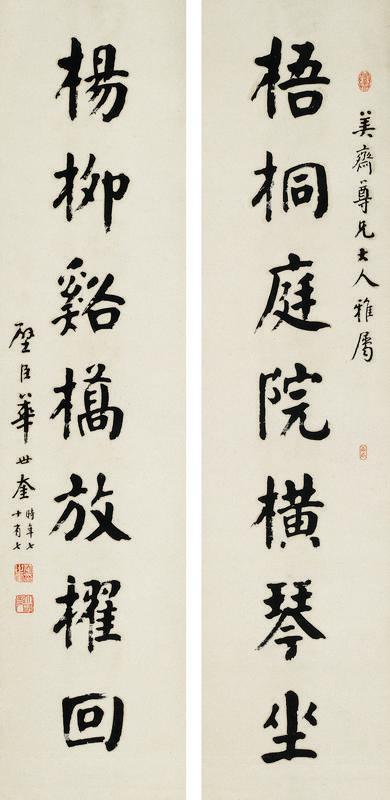 美齋尊兄大人雅屬
梧桐庭院橫琴坐
楊柳谿橋放櫂回
璧臣華世奎
時年七
十有七